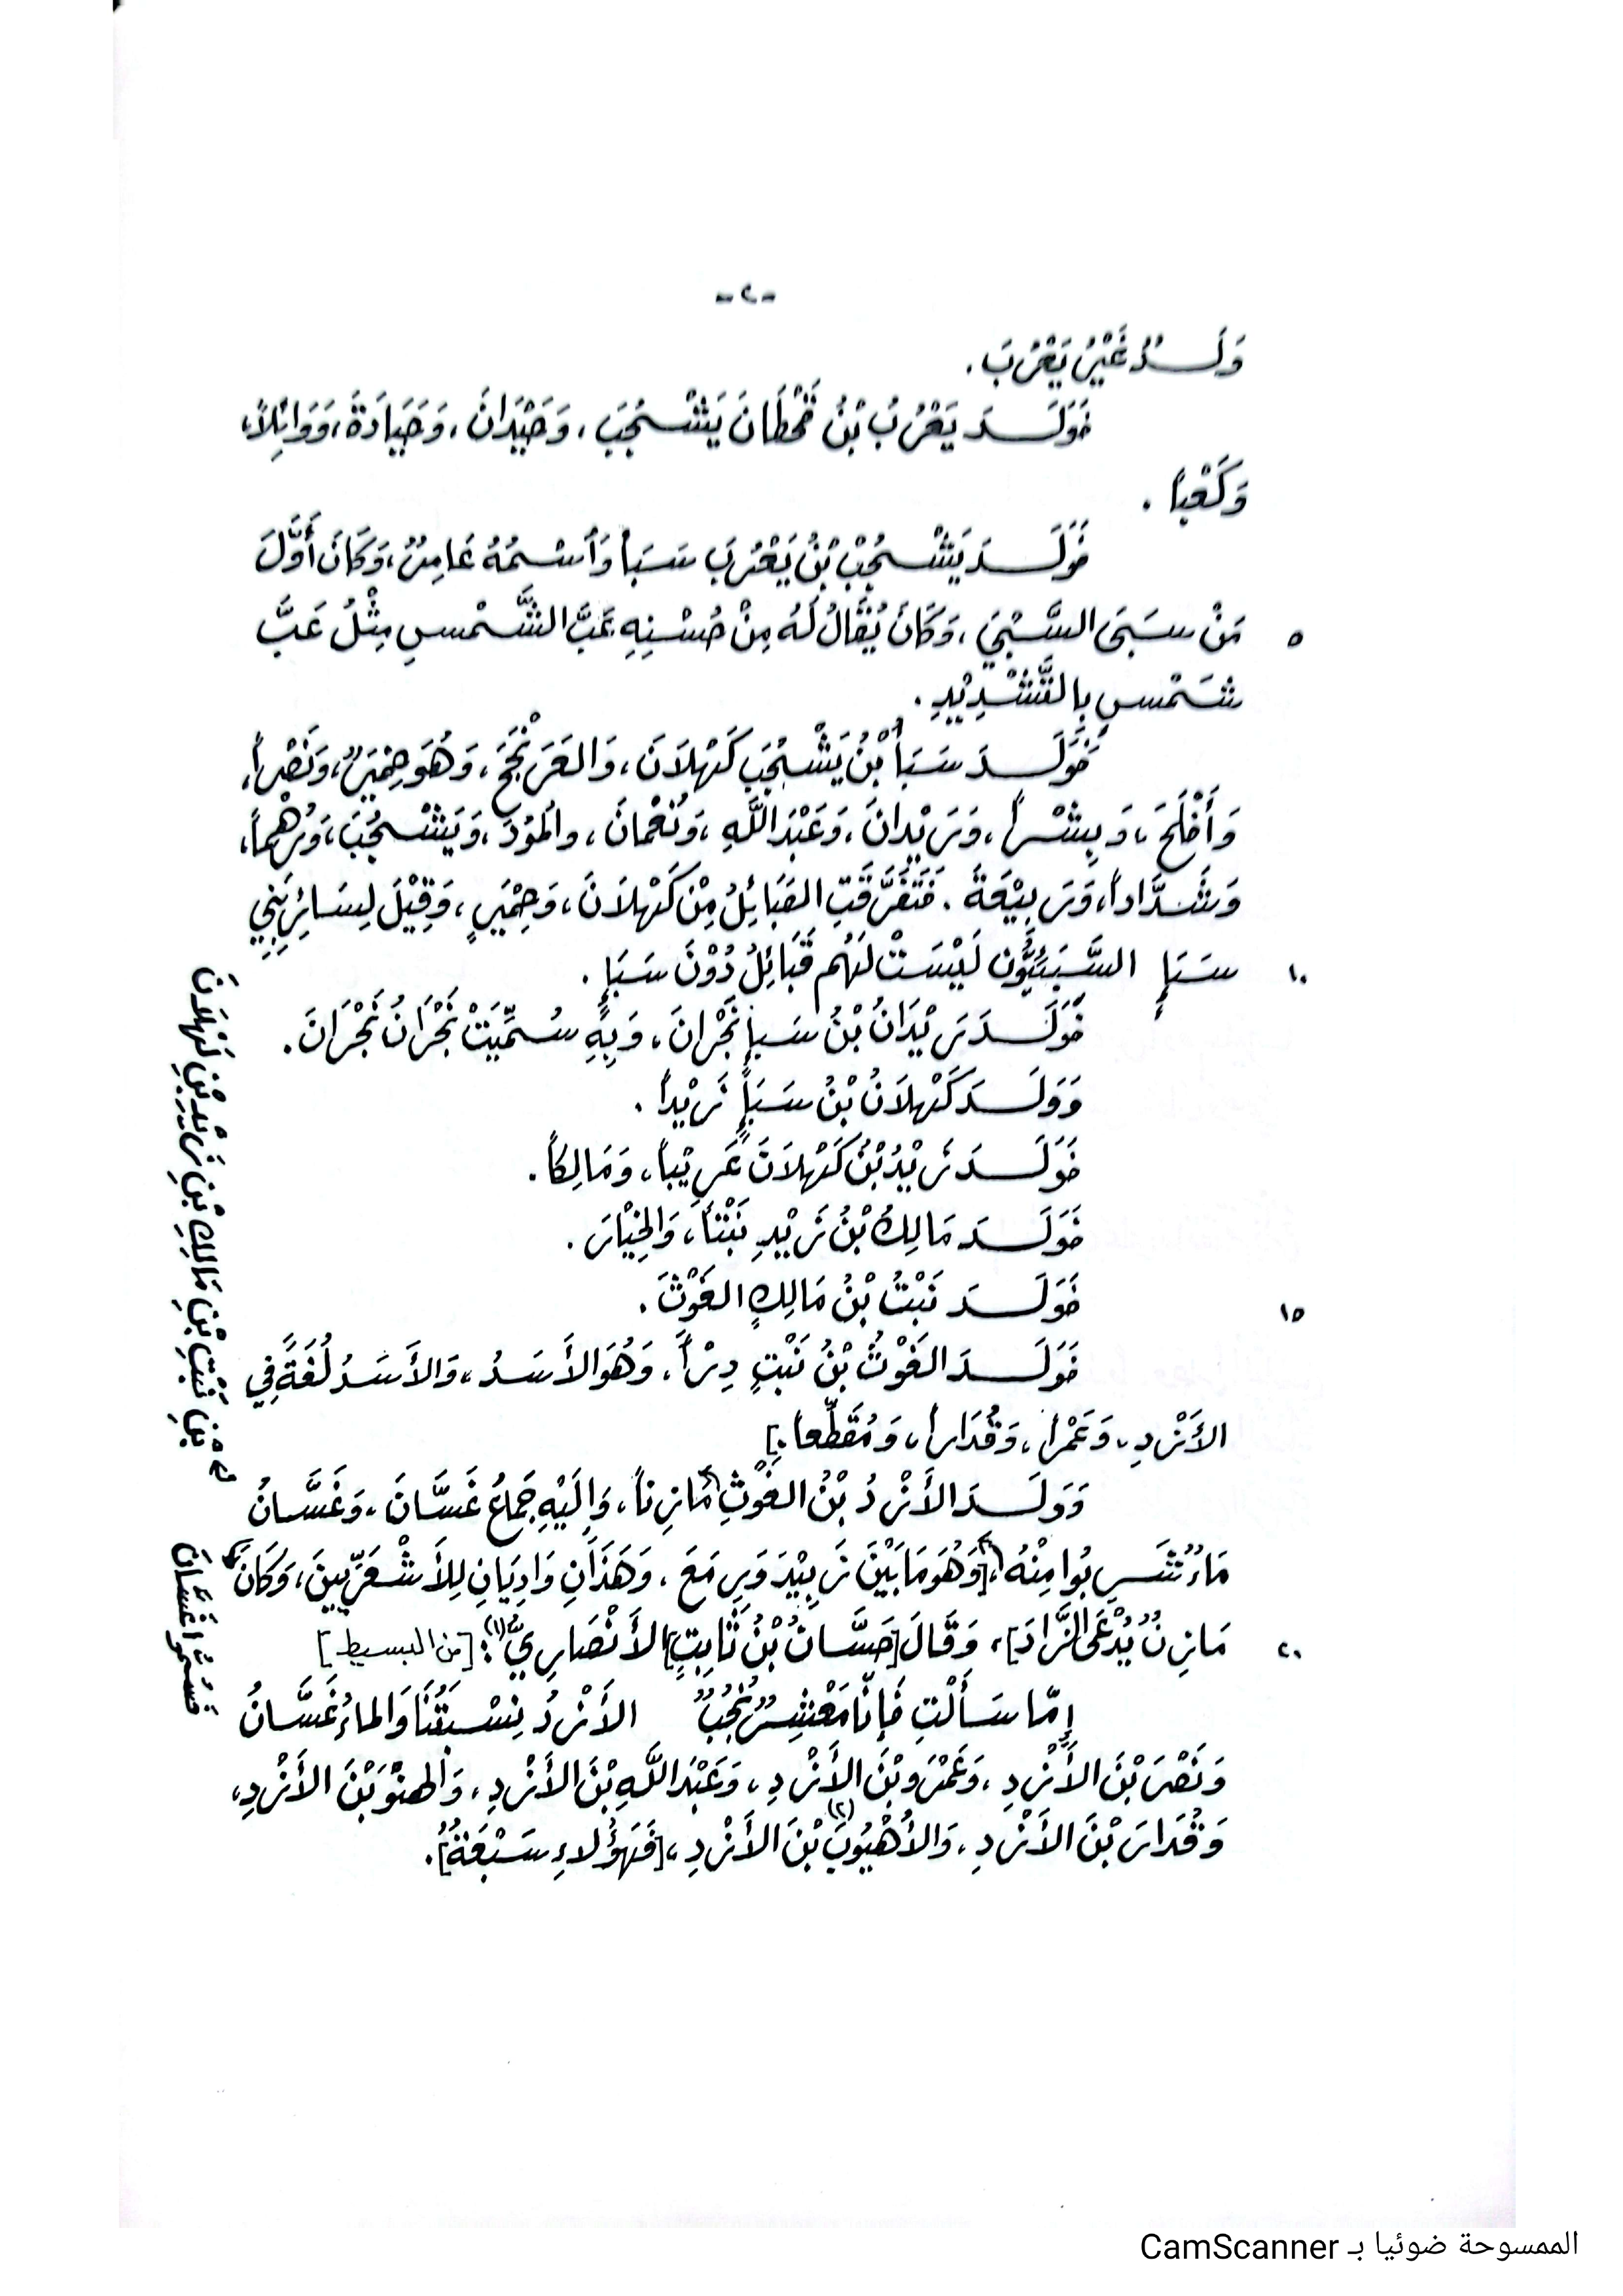 -٢-
وَلَــدُ غَيْرُ يَعْرُبَ .
فَوَلَــدَ يَعْرُبُ بْنُ قَحْطَانَ يَشْـجُبَ ، وَحَيْدَانَ ، وَحَيَادَةَ ، وَوَائِلاً ،
وَكَعْباً .
فَوَلَــدَ يَشْـجُبْ بْنُ يَعْرُبَ سَبَأ وَٱسْـمُهُ عَامِرٌ ، وَكَانَ أَوَّلَ
٥ مَنْ سَبَى السَّبْيَ ، وَكَانَ يُقَالُ لَهُ مِنْ حُسْنِهِ عَبَّ الشَّمْسِ مِثْلُ عَبَّ
شَمْسٍ بِالتَّشْدِيْدِ .
فَوَلَــدَ سَبَأُ بْنُ يَشْـجُبَ كَهْلاَنَ ، وَالعَرَنْجَجَ ، وَهُوَ حِمْيَرٌ ، وَنَصْراً ،
وَأَفْلَحَ ، وَبِشْـراً ، وَرَيْدانَ ، وَعَبْدَ اللَّهِ ، وَنُعْمانَ ، والمَوْدَ ، وَيَشْـجُبَ ، وَرُهْماً ،
وَشَدَّاداً ، وَرَبِيْعَةَ . فَتَفَرَّقَتِ القَبَائِلُ مِنْ كَهْلاَنَ ، وَحِمْيَرٍ ، وَقِيْلَ لِسَائِرِ بَنِي
١٠ سَبَإٍ السَّبَئِيُّون لَيْسَتْ لَهُم قَبَائِلُ دُوْنَ سَبَإٍ .
فَوَلَــدَ رَيْدَانُ بْنُ سَبإٍ نَجْرانَ ، وَبِهِ سُـمِّيَتْ نَجْرَانُ نَجْرَانَ .
وَوَلَــدَ كَهْلاَنُ بْنُ سَبَإٍ زَيْداً .
فَوَلَــدَ زَيْدُ بْنُ كَهْلاَنَ عَرِيْباً ، وَمَالِكاً .
فَوَلَــدَ مَالِكُ بْنُ زَيْدِ نَبْتاً ، وَالخِيْارَ .
١٥ فَوَلَــدَ نَبْتُ بْنُ مَالِكٍ الغَوْثَ .
فَوَلَــدَ الغَوْثُ بْنُ نَبْتٍ دِرْأً ، وَهُوَ الأَسَدُ ، وَالأَسَدُ لُغَةً في
الأَزْدِ ، وَعَمْراً ، وَقُدَاراً ، وَمُقَطِّعاً .]
وَوَلَــدَ الأَزْدُ بْنُ الغَوْثِ مَازِناً ، وَإِلَيْهِ جِمَاعُ غَسَّانَ ، وَغَسَّانُ
مَاءٌ شَـرِبُوا مِنْهُ ،[وَهُوَ مَا بَيْنَ زَبِيْدَ وَرِمَعَ ، وَهَذَانِ وَادِيَانِ لِلأَشْعَرِّيينَ ، وَكَانَ
٢٠ مَازِنٌ يُدْعَى الزَّادَ] ، وَقَالَ [حَسَّانُ بْنُ ثَابِتٍ] الأَنْصَارِيُّ (١) : [من البسيط]
إِمّا سَأَلْتِ فَإِنّا مَعْشِـرٌ نُجُبٌ الأَزْدُ نِسْـبَتُنَا وَالماءُ غَسَّانُ
وَنَصْرَ بْنَ الأَزْدِ ، وَعَمْرَو بْنَ الأَزْدِ ، وَعَبْدَ اللَّهِ بْنَ الأَزْدِ ، وَالهِنْوَ بْنَ الأَزْدِ ،
وَقُدَارَ بْنَ الأَزْدِ ، وَالأُهْيُوبَ (٢) بْنَ الأَزْدِ ، [فَهَؤُلاءِ سَبْعَةٌ] .
بْنِ نَبْتِ بْنِ مَالِكِ بْنِ زَيْدِ بْنِ كَهْلاَنَ
فَسُمُّوا غَسَّانَ
الممسوحة ضوئيا بـ CamScanner